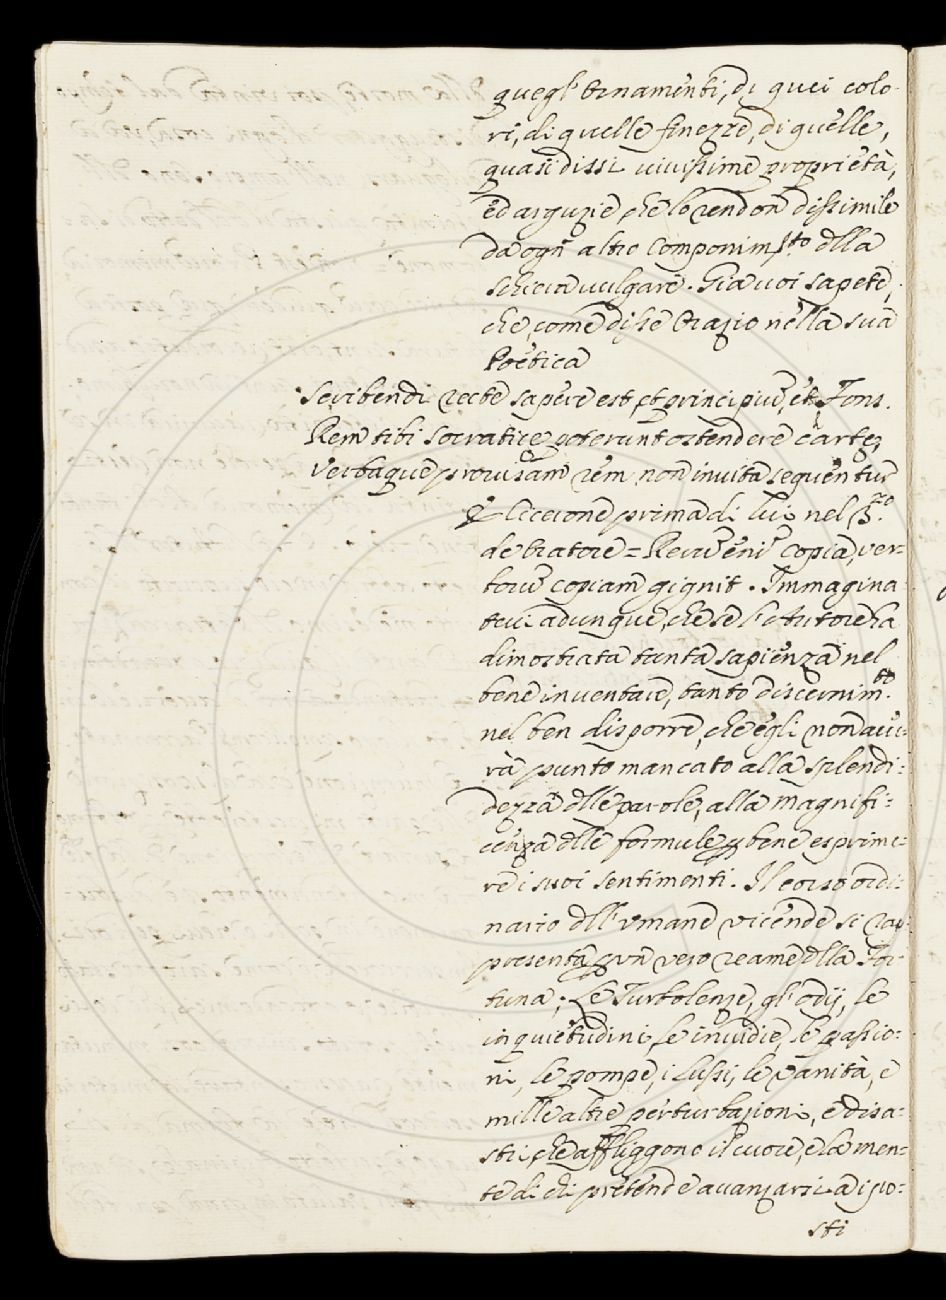 quegl'Ornamenti, di quei colo-
ri, di quelle finezze, di quelle,
quasi dissi vivissime proprietà,
ed arguzie che lo rendon dissimile
da ogn'altro Componim.to dlla
schiera vulgare. Già voi sapete,
che, come disse Orazio nella sua
Poetica
Scribendi recte sapere est, et principiũ, et Fons.
Rem tibi Socratice poterunt ostendere cartę,
Verbaque provisam rem non invita sequentur
E Cicerone prima di lui nel 3.zo
de Oratore = Rerũ enĩ copia, ver-
borũ copiam gignit. Immagina
tevi adunque, che se l'Autore ha
dimostrata tanta sapienza nel
bene inventare, tanto discernim.to
nel ben disporre, che egli non avi-
rà punto mancato alla splendi-
dezza dlle parole, alla magnifi-
cenza dlle formule p bene esprime-
re i suoi sentimenti. Il corso ordi-
nario dll'umane vicende si rap-
presenta p un vero reame dlla For-
tuna; Le Turbolenze, gl'odij, le
inquietudini, le invidie, le passio-
ni, le pompe, i Lussi, le Vanità, e
mille altre perturbazioni, e disa-
stri, che affliggono il cuore, e la men-
te di chi pretende avanzarsi a i po-
sti